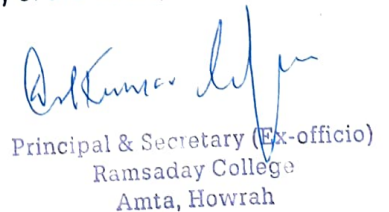 Kumar
Principal & Secretary (Ex-officio)
Ramsaday College
Amta, Howrah